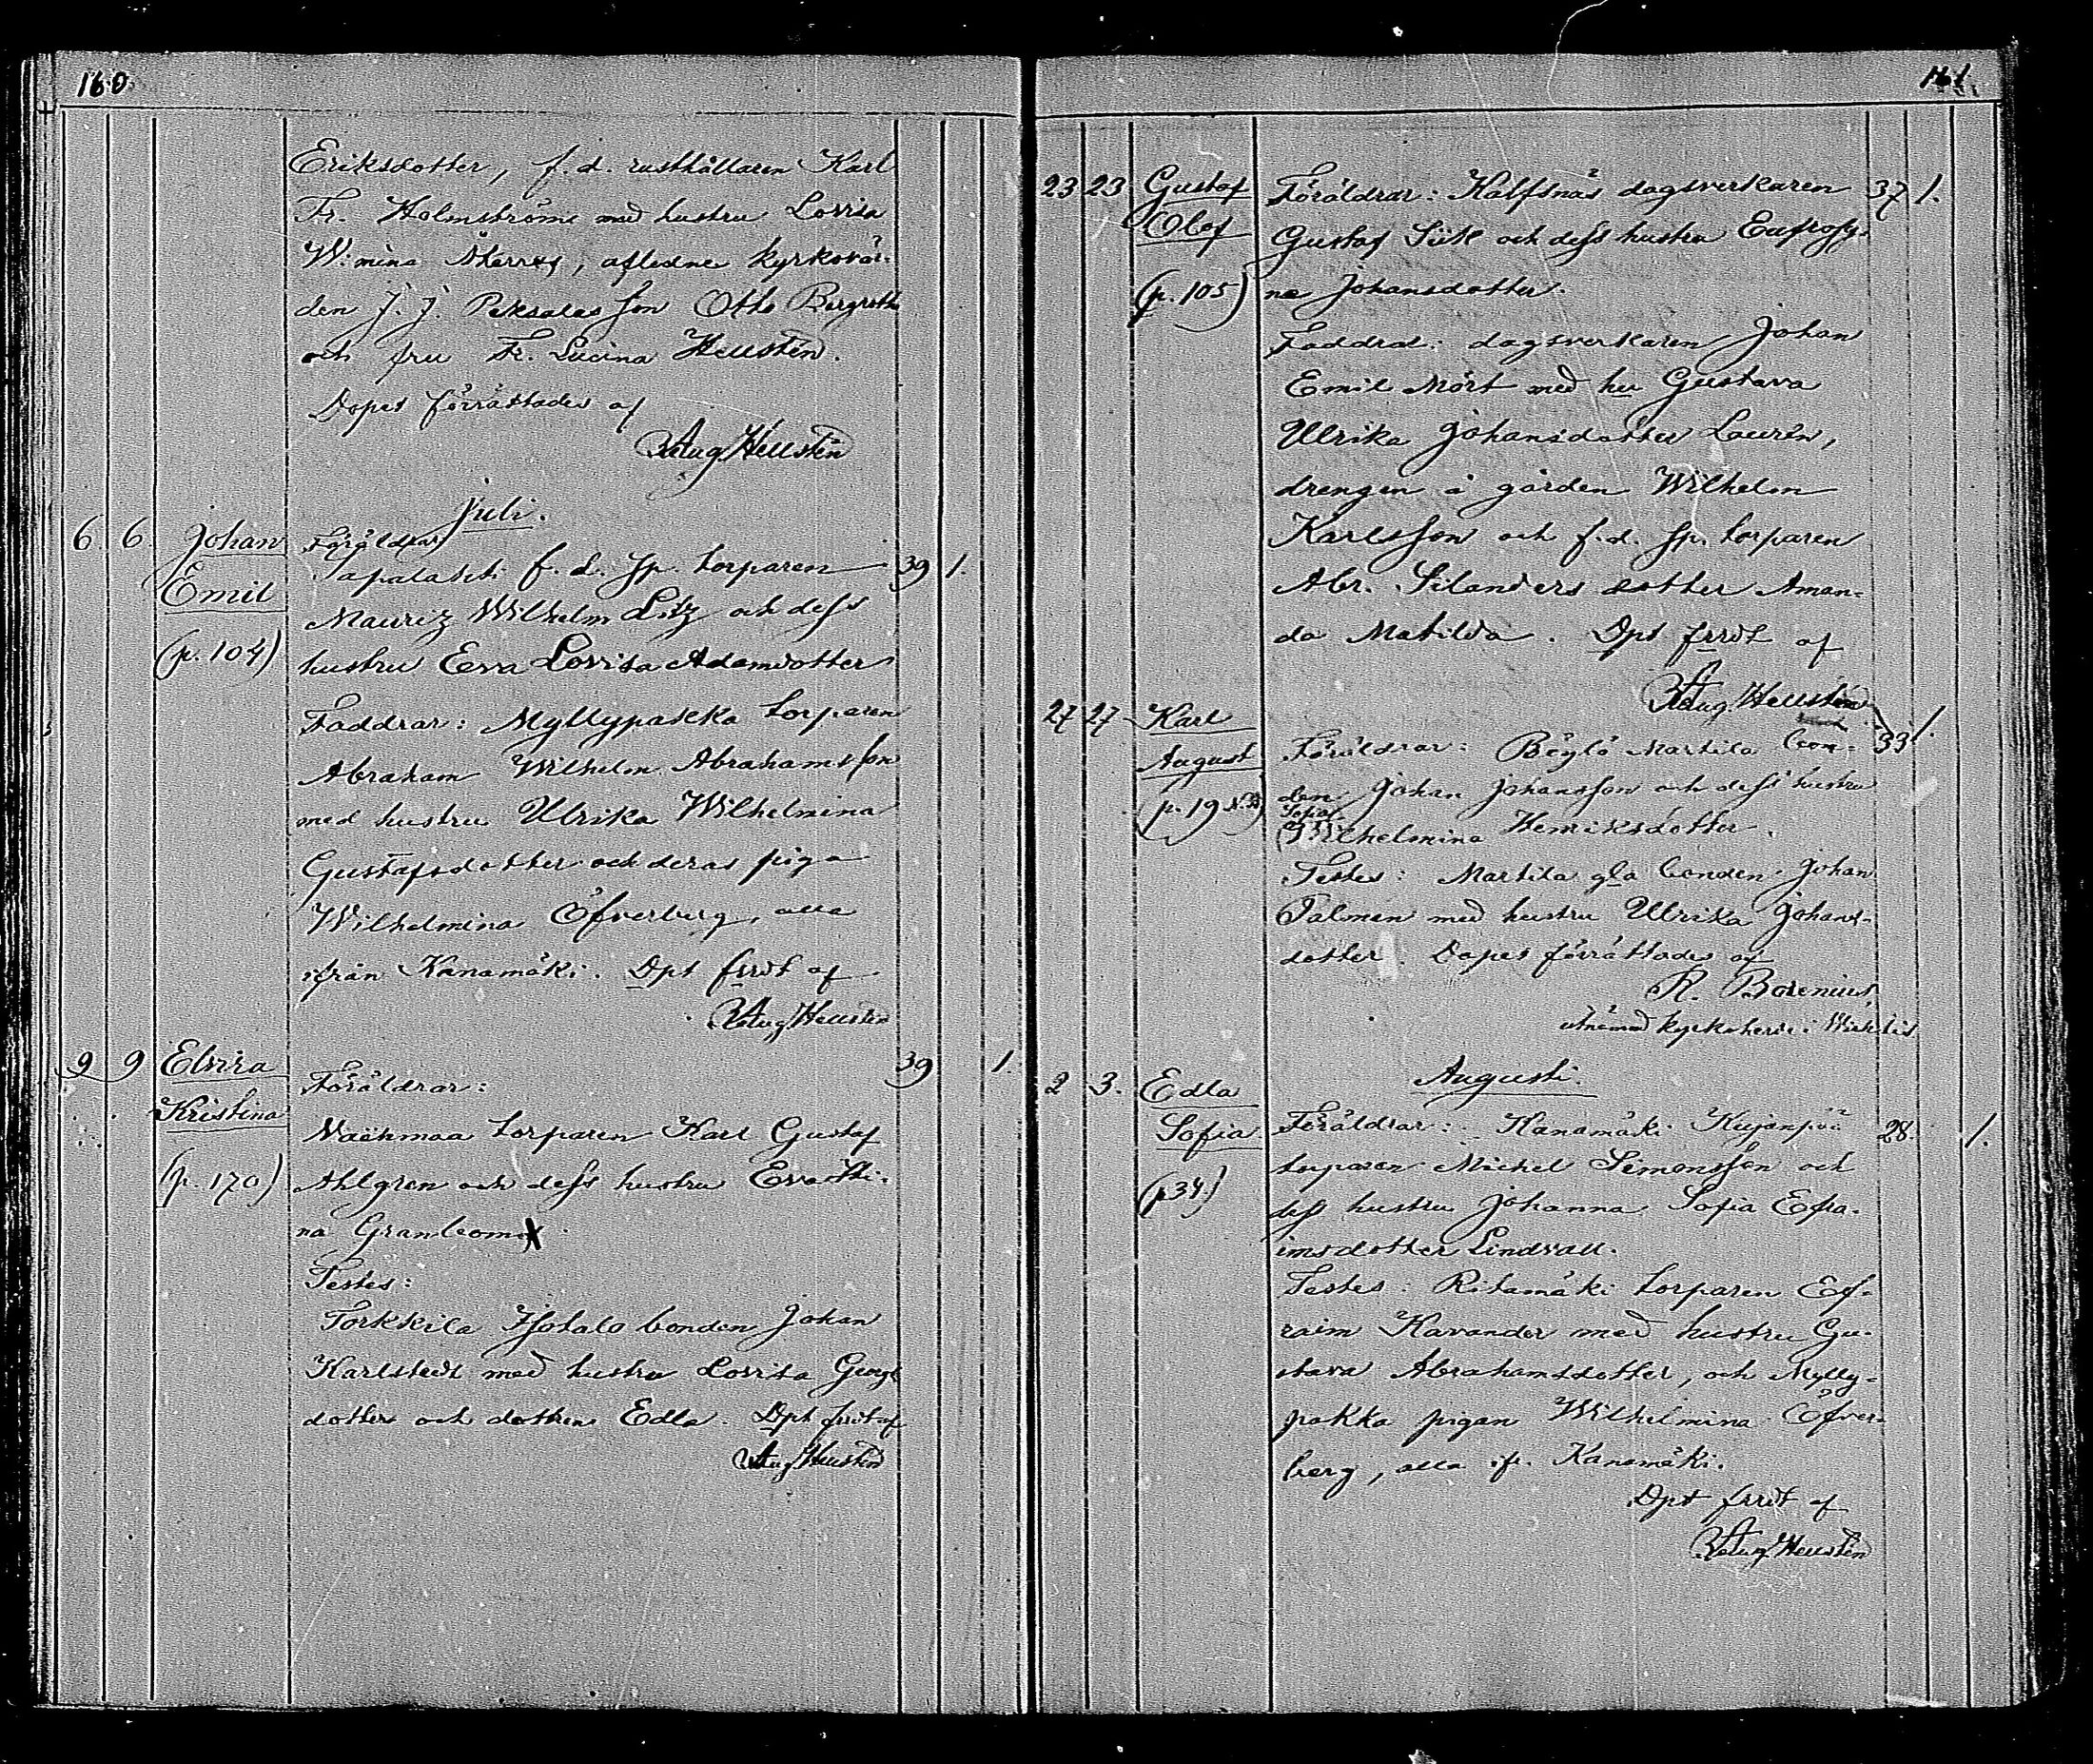 160
Eriksdotter, f. d. rusthållaren Karl
Fr. Holmström med hustru Lovisa
W:mina, afledne kyrkovär-
den J. J. Peksalas son Otto Bergroth
och fru Fr. Lucina Hellstén.
Dopet förrättades af
Aug Hellstén
Juli.
6. 6. Johan Föräldrar
Sapalahti f. d. sp. torparen 39 1.
Emil
Mauritz Wilhelm Litz och dess
(p. 104) hustru Eva Lovisa Adamsdotter
Faddrar: Myllypakka torparen
Abraham Wilhelm Abrahamsson
med hustru Ulrika Wilhelmina
Gustafsdotter och deras piga
Wilhelmina Öfverberg, alla
ifrån Kanamäki. Dpt frrdt af
Aug Hellstén
9 9 Elvira Föräldrar: 39 1.
Kristina
Naehmaa torparen Karl Gustaf
(p. 170) Ahlgren och dess hustru Eva Sti-
na Granbom
Testes:
Torkkila Isotalo bonden Johan
Karlstedt med hustru Lovisa Georgs
dotter och dottren Edla. Dpt frrdt af
Aug Hellstén
161.
23 23 Gustaf Föräldrar: Kalfsnäs dagsverkaren 37 1.
Olof Gustaf Siik och dess hustru Eufrosy-
(p. 105) ne Johansdotter.
Faddrar: dagsverkaren Johan
Emil Mört med hu Gustava
Ulrika Johansdotter Laurén,
drengen å gården Wilhelm
Karlsson och f. d. sp. torparen
Abr. Silanders dotter Aman-
da Matilda. Dpt frrdt af
Aug Hellstén
27 27 Karl
August Föräldrar: Böylä Martila bon- 33 1.
(p. 19 N.B) den Johan Johansson och dess hustru
Sofia
Wilhelmina Henriksdotter.
Testes: Martila gla bonden Johan
Salmen med hustru Ulrika Johans-
dotter. Dopet förrättades af
R. Borenius,
utnämnd kyrkoherde i Wichtis
Augusti.
2 3. Edla
Sofia Föräldrar: Kanamäki Kujanpää 28. 1.
torparen Mickel Simonsson och
(p 34.) dess hustru Johanna Sofia Efra-
imsdotter Lindvall.
Testes: Ritamäki torparen Ef-
raim Kavander med hustru Gu-
stava Abrahamsdotter, och Mylly-
pakka pigan Wilhelmina Öfver-
berg, alla ifr. Kanamäki.
Dpt frrdt af
Aug Hellstén